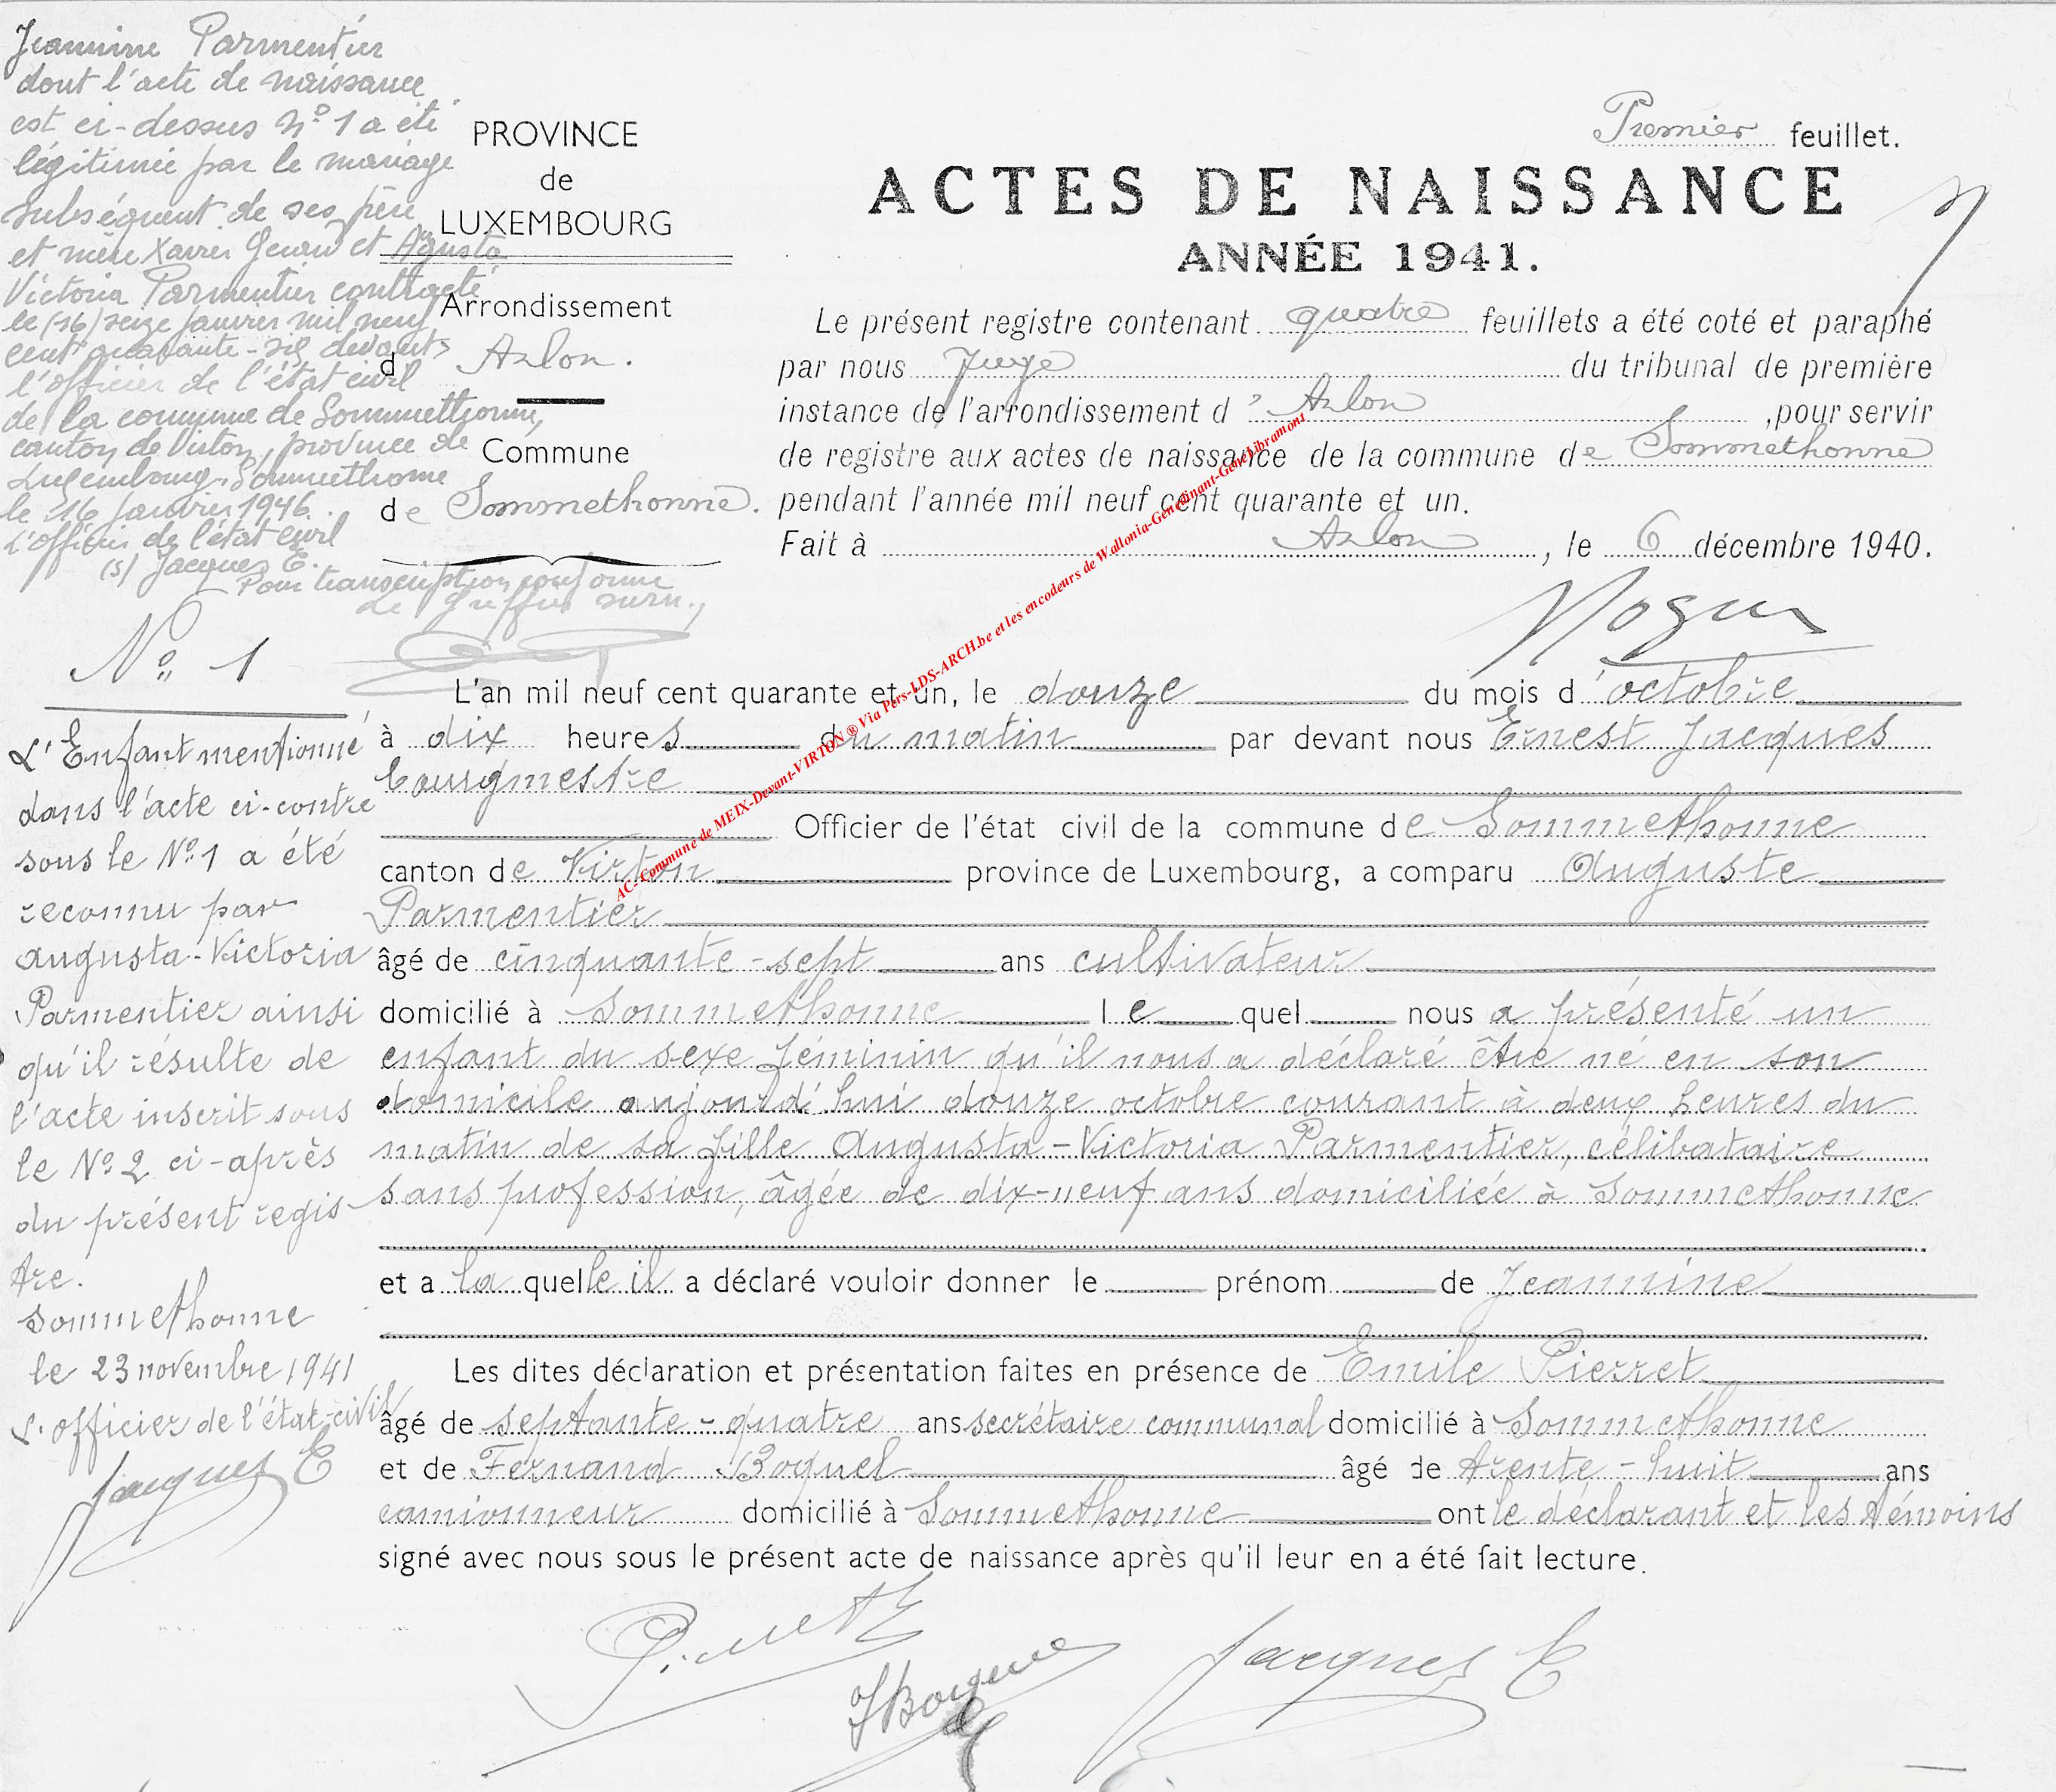 Jeannine Parmentier
dont l'acte de naissance
est ci-dessus N° 1 a été
légitimée par le mariage
subséquent de ses père
et mère Xavier et Agusta
Victoria Parmentier contracté
le (16) seize janvier mil neuf
cent quarante-six devant
l'officier de l'état civil
de la commune de Sommethonne,
canton de Virton, province de
Luxembourg. Sommethonne
le 16 janvier 1946.
L'officier de l'état civil
(s) Jacques E.
Pour transcription conforme
Le Greffier
PROVINCE
de
LUXEMBOURG
Arrondissement
d Arlon.
Commune
de Sommethonne.
Premier feuillet.
ACTES DE NAISSANCE
ANNÉE 1941.
Le présent registre contenant quatre feuillets a été coté et paraphé
par nous Juge du tribunal de première
instance de l'arrondissement d' Arlon ,pour servir
de registre aux actes de naissance de la commune de Sommethonne
pendant l'année mil neuf cent quarante et un.
Fait à Arlon, le 6 décembre 1940.
AC- Commune de MEIX-Devant-VIRTON ® Via Pers-LDS-ARCH.be et les encodeurs de Wallonia-GeneDinant-GeneLibramont
N° 1
L'Enfant mentionné
dans l'acte ci-contre
sous le N° 1 a été
reconnu par
Augusta-Victoria
Parmentier ainsi
qu'il résulte de
l'acte inscrit sous
le N° 2 ci-après
du présent regis-
tre.
Sommethonne
le 23 novembre 1941
L'officier de l'état-civil
Jacques E
L'an mil neuf cent quarante et un, le douze du mois d'octobre
à dix heures du matin par devant nous Ernest Jacques
bourgmestre
Officier de l'état civil de la commune de Sommethonne
canton de Virton province de Luxembourg, a comparu Auguste
Parmentier
âgé de cinquante-sept ans cultivateur
domicilié à Sommethonne lequel nous a présenté un
enfant du sexe féminin qu'il nous a déclaré être né en son
domicile aujourd'hui douze octobre courant à deux heures du
matin de sa fille Augusta-Victoria Parmentier, célibataire
sans profession, âgée de dix-neuf ans domiciliée à Sommethonne
et a la quelle il a déclaré vouloir donner le prénom de Jeannine
Les dites déclaration et présentation faites en présence de Emile Pierret
âgé de septante-quatre ans secrétaire communal domicilié à Sommethonne
et de Fernand Boquel âgé de trente-huit ans
camionneur domicilié à Sommethonne ont le déclarant et les témoins
signé avec nous sous le présent acte de naissance après qu'il leur en a été fait lecture.
Jacques E